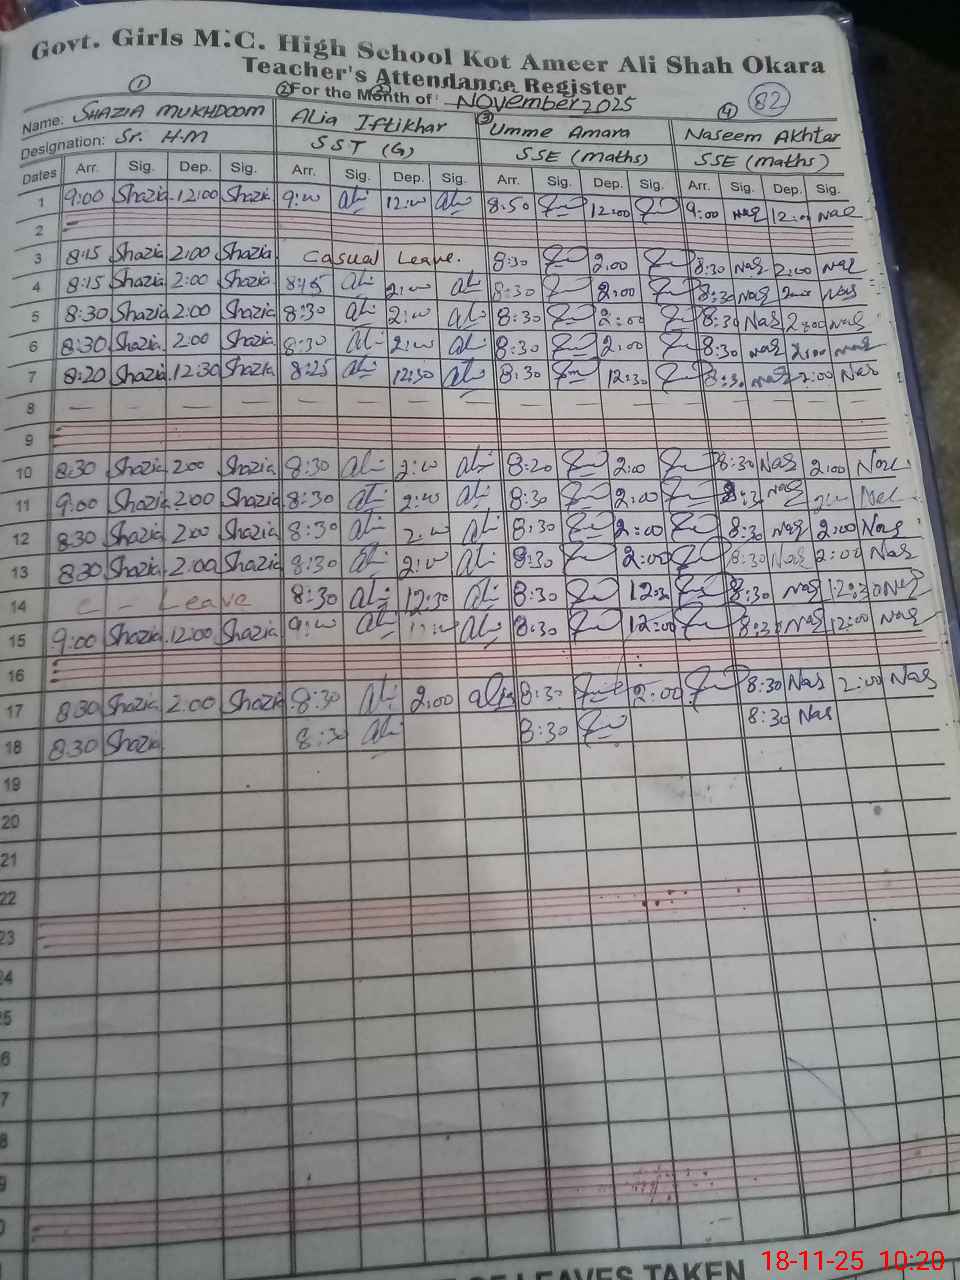 Govt. Girls M.C. High School Kot Ameer Ali Shah Okara
Teacher's Attendance Register
For the Month of: November 2025
82
1 2 3 4
Name: SHAZIA MUKHDOOM Alia Iftikhar Umme Amara Naseem Akhtar
Designation: Sr. H.M SST (G) SSE (maths) SSE (maths)
Dates Arr. Sig. Dep. Sig. Arr. Sig. Dep. Sig. Arr. Sig. Dep. Sig. Arr. Sig. Dep. Sig.
1 9:00 Shazia 12:00 Shazia 9:00 Ali 12:00 Ali 8:50 12:00 9:00 Nas 12:00 Nas
2
3 8:15 Shazia 2:00 Shazia Casual Leave. 8:30 2:00 8:30 Nas 2:00 Nas
4 8:15 Shazia 2:00 Shazia 8:15 Ali 2:00 Ali 8:30 2:00 8:30 Nas Nas
5 8:30 Shazia 2:00 Shazia 8:30 Ali 2:00 Ali 8:30 2:00 8:30 Nas 2:00 Nas
6 8:30 Shazia 2:00 Shazia 8:30 Ali 2:00 Ali 8:30 2:00 8:30 Nas 2:00 Nas
7 8:20 Shazia 12:30 Shazia 8:25 Ali 12:30 Ali 8:30 12:30 8:30 Nas 2:00 Nas
8 — — — — — — — — — — — — — — — —
9
10 8:30 Shazia 2:00 Shazia 8:30 Ali 2:00 Ali 8:20 2:00 8:30 Nas 2:00 Nas
11 9:00 Shazia 2:00 Shazia 8:30 Ali 2:00 Ali 8:30 2:00 8:30 Nas Nas
12 8:30 Shazia 2:00 Shazia 8:30 Ali 2:00 Ali 8:30 2:00 8:30 Nas 2:00 Nas
13 8:30 Shazia 2:00 Shazia 8:30 Ali 2:00 Ali 8:30 2:00 8:30 Nas 2:00 Nas
14 C - Leave 8:30 Ali 12:30 Ali 8:30 12:30 8:30 Nas 12:30 Nas
15 9:00 Shazia 12:00 Shazia 9:00 Ali Ali 8:30 12:00 8:30 Nas 12:00 Nas
16
17 8:30 Shazia 2:00 Shazia 8:30 Ali 2:00 Ali 8:30 2:00 8:30 Nas 2:00 Nas
18 8:30 Shazia 8:30 Ali 8:30 8:30 Nas
19
20
21
22
23
24
5
6
7
8
9
0
OF LEAVES TAKEN
18-11-25 10:20